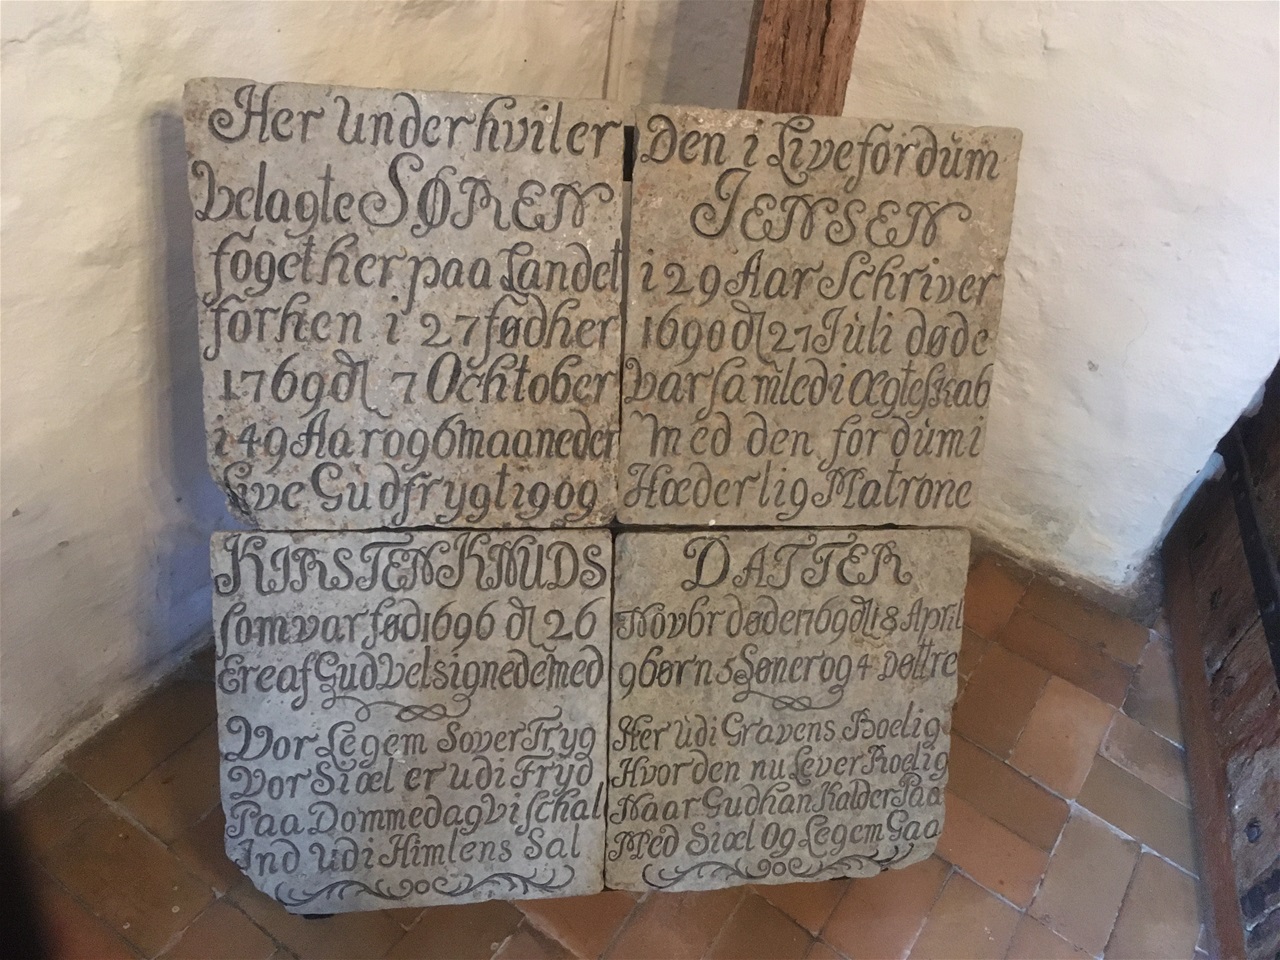 Her Underhviler Den i Livefordum
velagte SØREN JENSEN
fogether paa Landet i 29 Aar Schriver
forhen i 27 fødher 1690 dl 27 Juli døde
1769 dl 7 Ochtober var samled i Ægteskab
i 49 Aar og 6 maaneder Med den fordum i
live Gudfrygtig og Hæderlig Matrone
KIRSTEN KNUDS DATTER
som var fød 1696 dl 26 Novbr døde 1769 dl 18 April
Ere af Gud Velsignede med 9 børn 5 Søner og 4 Døttre
Vor Legem Sover Tryg
Vor Siæl er udi Fryd
Paa Dommedag vi schal
Ind udi Himlens Sal
Her udi Gravens Boelig
Hvor den nu Lever Roelig
Naar Gud han Kalder Paa
Med Siæl Og Legem Gaa